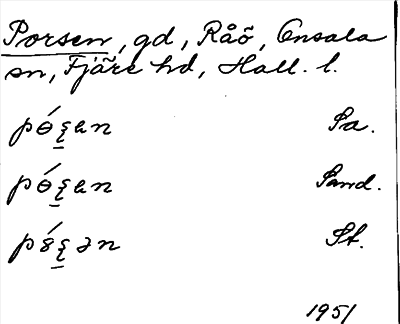 Porsen, gd, Råö, Onsala
sn, Fjäre hd, Hall. l.
pǿʂ̲an Sa.
pǿʂ̲an Sand.
St.
1951